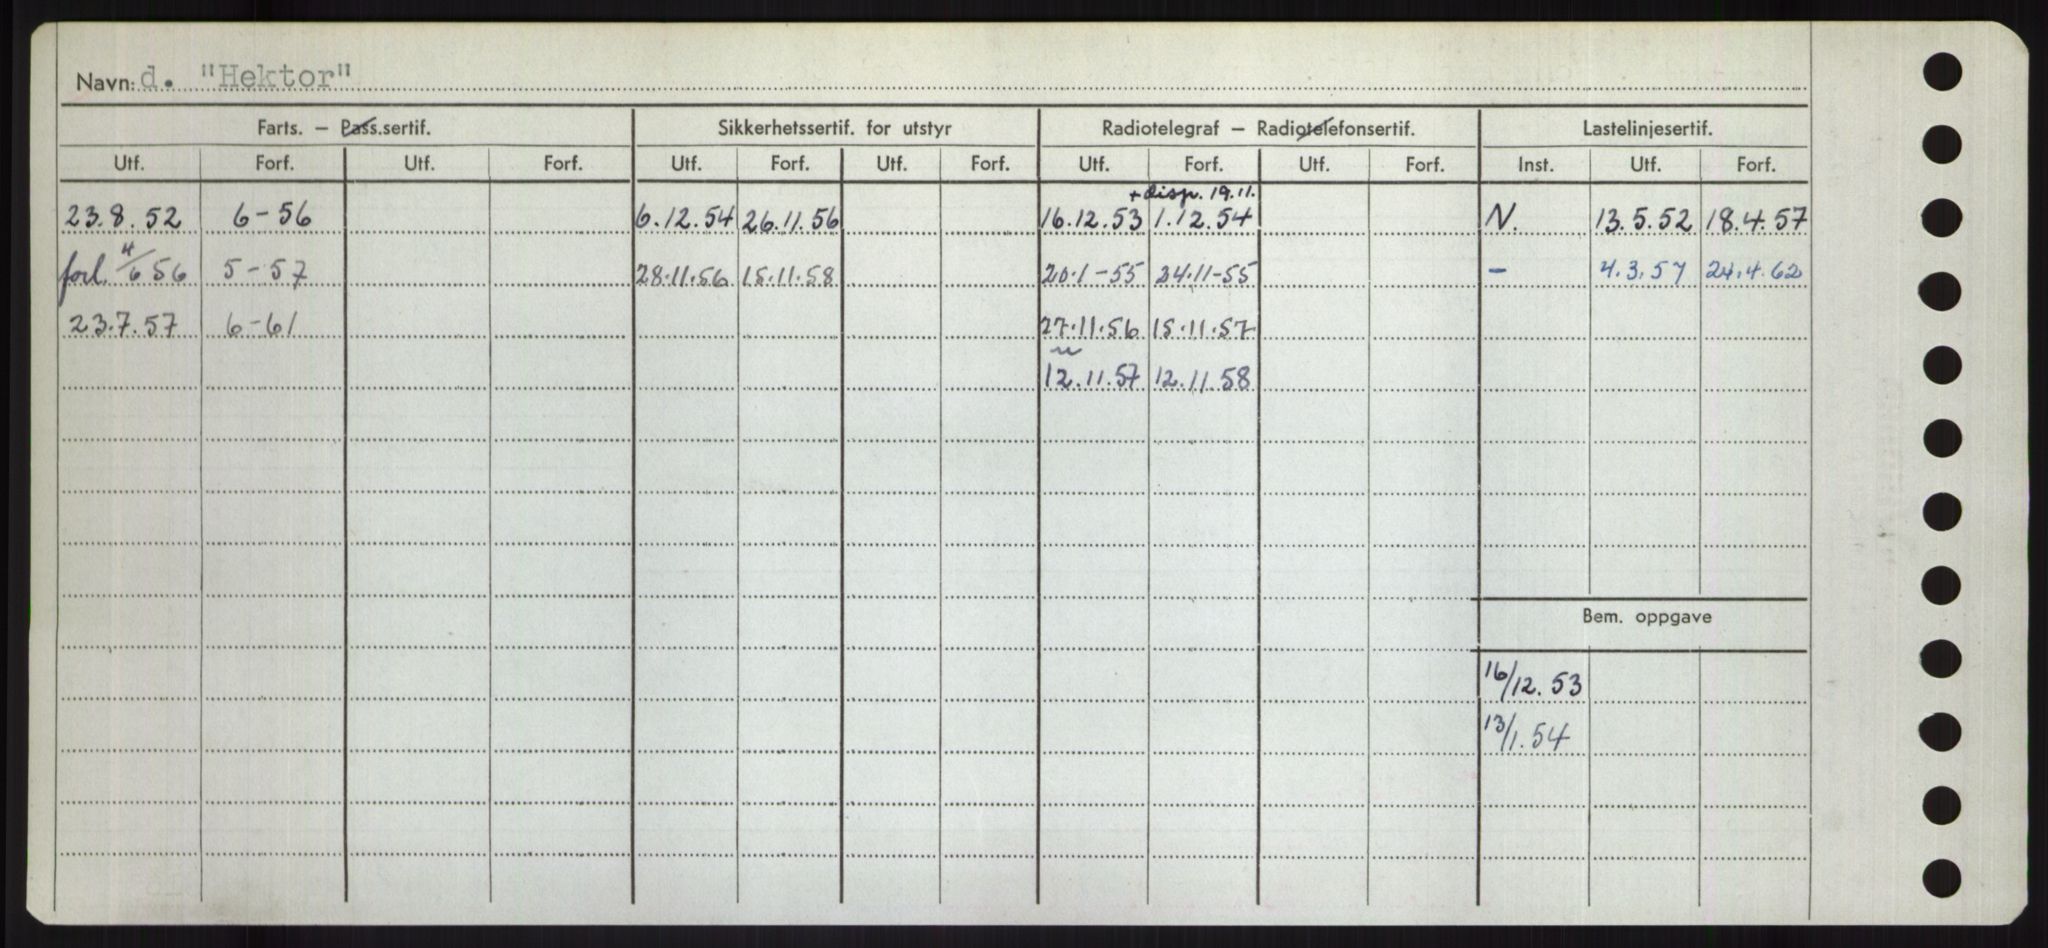 Navn: d. "Hektor"
Farts. – Pass.sertif. Sikkerhetssertif. for utstyr Radiotelegraf – Radiotelefonsertif. Lastelinjesertif.
Utf. Forf. Utf. Forf. Utf. Forf. Utf. Forf. Utf. Forf. Utf. Forf. Inst. Utf. Forf.
+ disp. 19.11.
23.8.52 6-56 6.12.54 26.11.56 16.12.53 1.12.54 N. 13.5.52 18.4.57
forl. 4/6 56 5-57 28.11.56 15.11.58 20.1-55 24.11-55 – 4.3.57 24.4.62
23.7.57 6-61 27.11.56 15.11.57
12.11.57 12.11.58
Bem. oppgave
16/12.53
13/1.54